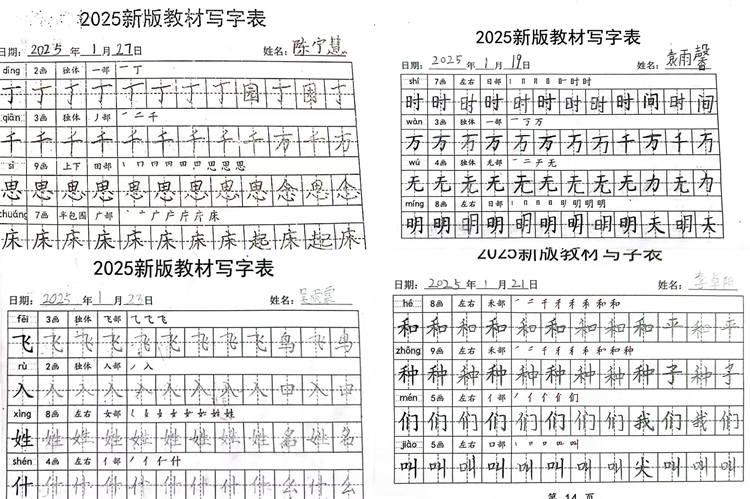 2025新版教材写字表
日期: 2025 年 1 月 27 日 姓名: 陈宁慧
dīng 2画 独体 一部 一 丁
丁 丁 丁 丁 丁 丁 丁 丁 园 丁 园 丁
qiān 3画 独体 丿部 一 二 千
千 千 千 千 千 千 千 千 千 万 千 万
sī 9画 上下 田部 丨 口 日 田 田 田 思 思 思
思 思 思 思 思 思 思 思 思 念 思 念
chuáng 7画 半包围 广部 丶 亠 广 庐 庄 床 床
床 床 床 床 床 床 床 起 床 起 床
2025新版教材写字表
日期: 2025 年 1 月 19 日 姓名: 袁雨馨
shí 7画 左右 日部 丨 冂 日 日 旪 时 时
时 时 时 时 时 时 时 时 时 间 时 间
wàn 3画 独体 一部 一 丆 万
万 万 万 万 万 万 万 万 万 千 万 千 万
wú 4画 独体 无部 一 二 チ 无
无 无 无 无 无 无 无 无 无 力 无 力
míng 8画 左右 日部 丨 冂 日 日 明 明 明 明
明 明 明 明 明 明 明 明 明 天 明 天
2025新版教材写字表
日期: 2025 年 1 月 23 日 姓名:
fēi 3画 独体 飞部 乁 飞 飞
飞 飞 飞 飞 飞 飞 飞 飞 飞 鸟 飞 鸟
rù 2画 独体 入部 丿 入
入 入 入 入 入 入 入 入 入 申 入 申
xìng 8画 左右 女部
姓 姓 姓 姓 姓 姓 姓 姓 姓 名 姓 名
shén 4画 左右 亻部 丿 亻 仁 什
什 什 什 什 什 什 什 什 什 么 什 么
2025新版教材写字表
日期: 2025 年 1 月 21 日 姓名: 李卓阳
hé 8画 左右 禾部 丿 二 千 千 禾 禾 和 和
和 和 和 和 和 和 和 和 和 平 和 平
zhǒng 9画 左右 禾部 丿 二 千 千 禾 禾 和 和 种
种 种 种 种 种 种 种 种 种 子 种 子
men 5画 左右 亻部 丿 亻 亻 们 们
们 们 们 们 们 们 们 们 们 我 们 我 们
jiào 5画 左右 口部 丨 口 口 叫 叫
叫 叫 叫 叫 叫 叫 叫 叫 叫 尖 叫 尖 叫
第 14 页